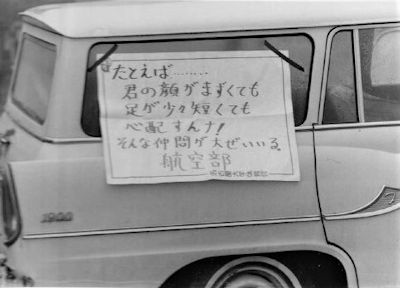 たとえば………
君の顔がまずくても
足が少々短くても
心配すんナ!
そんな仲間が大ぜいいる。
航空部
1900